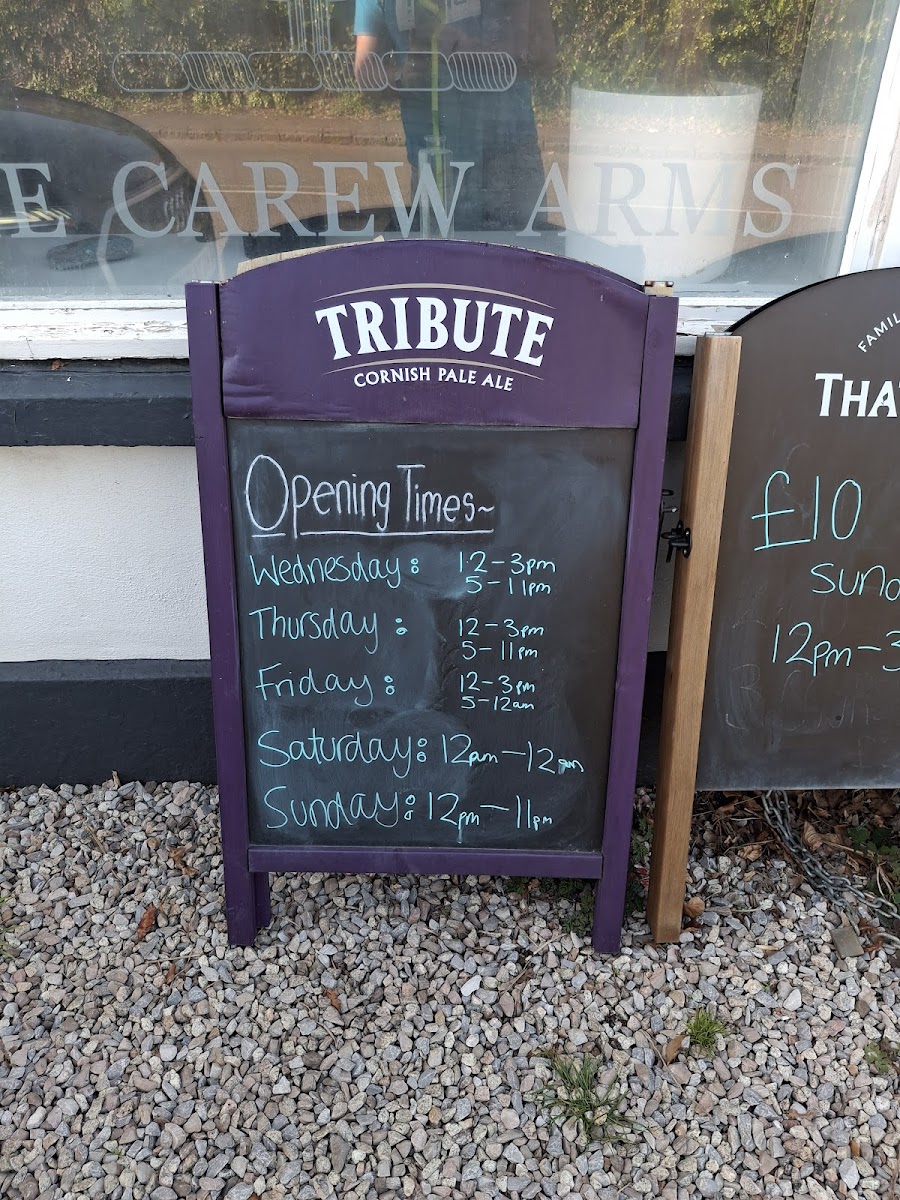 E CAREW ARMS
TRIBUTE
CORNISH PALE ALE
Opening Times~
Wednesday: 12-3pm
5-11pm
Thursday: 12-3pm
5-11pm
Friday: 12-3pm
5-12am
Saturday: 12pm-12am
Sunday: 12pm-11pm
FAMIL
THAT
£10
Sund
12pm-3